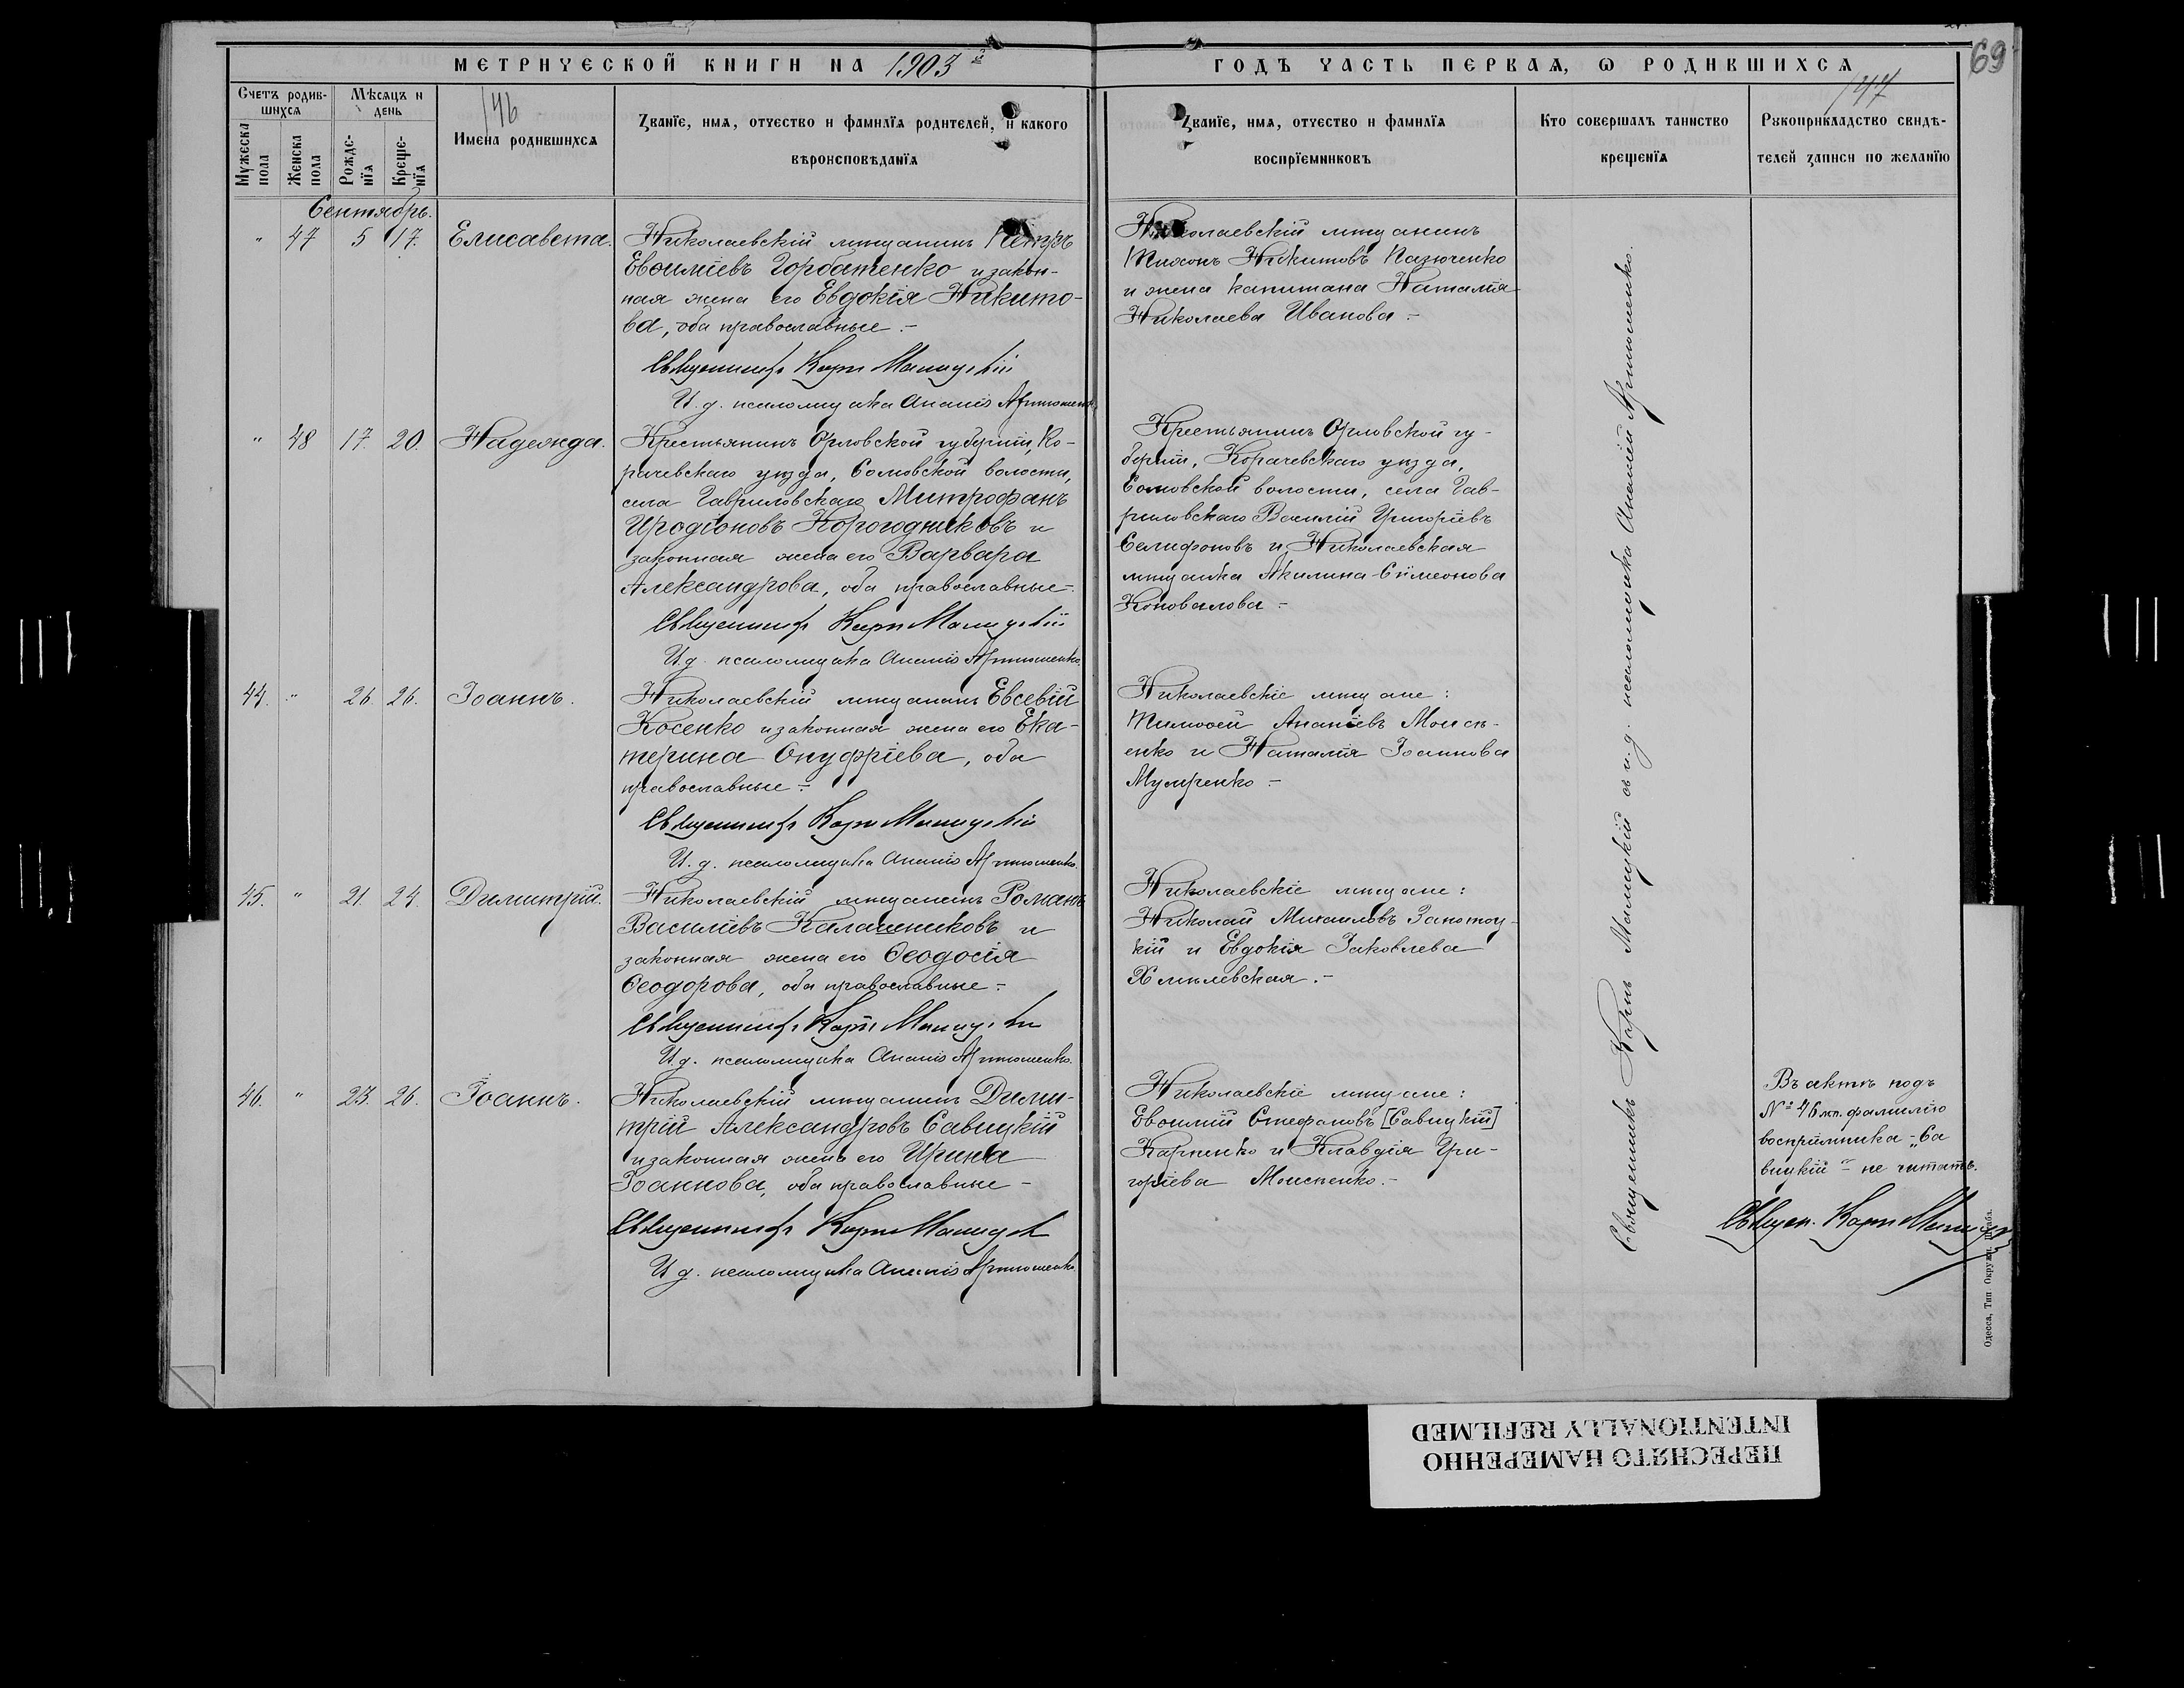 МЕТРИЧЕСКОЙ КНИГИ НА 1903й
ГОДЪ ЧАСТЬ ПЕРВАЯ, Ѡ РОДИВШИХСЯ
69
146
147
Счетъ родив-
шихся
Мѣсяцъ и
день
Мужеска пола
Женска пола
Рожде-
нїя
Креще-
нїя
Имена родившихся
Званїе, имя, отчество и фамилїя родителей, и какого
вѣроисповѣданїя
Званїе, имя, отчество и фамилїя
воспрїемниковъ
Кто совершалъ таинство
крещенїя
Рукоприкладство свидѣ-
телей записи по желанїю
Сентябрь.
" 47 5 17. Елисавета.
Николаевскій мѣщанинъ Петръ
Евѳиміевъ Горбатенко и закон-
ная жена его Евдокія Никито-
ва, оба православные.-
Священникъ Карпъ
И. д. псаломщика Ананій Артюшенко
Николаевскій мѣщанинъ
Тихонъ Никитовъ Пазюченко
и жена капитана Наталія
Николаева Иванова.-
" 48 17. 20. Надежда.
Крестьянинъ Орловской губерніи, Ко-
рачевскаго уѣзда, Сомовской волости,
села Гавриловскаго Митрофанъ
Иродіоновъ Корогодниковъ и
законная жена его Варвара
Александрова, оба православные-
Священникъ Карпъ
И. д. псаломщика Ананій Артюшенко.
Крестьянинъ Орловской гу-
берніи, Корачевскаго уѣзда,
Сомовской волости, села Гав-
риловскаго Василій Григоріевъ
Селифоновъ и Николаевская
мѣщанка Акилина Симеонова
Коновалова-
44. " 26. 26. Іоаннъ.
Николаевскій мѣщанинъ Евсевій
Косенко и законная жена его Ека-
терина Онуфріева, оба
православные-
Священникъ Карпъ
И. д. псаломщика Ананій Артюшенко.
Николаевскіе мѣщане:
Тимоѳей Ананіевъ Моисѣ-
енко и Наталія Іоаннова
45. " 21. 24. Димитрій.
Николаевскій мѣщанинъ Романъ
Василіевъ Калашниковъ и
законная жена его Ѳеодосія
Ѳеодорова, оба православные-
Священникъ Карпъ
И. д. псаломщика Ананій Артюшенко.
Николаевскіе мѣщане:
Николай Михаиловъ
и Евдокія Іаковлева
Хмѣлевская.-
46. " 23. 26. Іоаннъ.
Николаевскій мѣщанинъ Дими-
трій Александровъ Савицкій
и законная жена его Ирина
Іоаннова, оба православные-
Священникъ Карпъ
И. д. псаломщика Ананій Артюшенко.
Николаевскіе мѣщане:
Евѳимій Стефановъ [Савицкій]
Карпенко и Клавдія Гри-
горіева Моисѣенко.-
Священникъ Карпъ съ и. д. псаломщика Ананій Артюшенко.
Въ актѣ подъ
№ 46 фамилію
воспріимника - „Са
вицкій" не читать.
Священ. Карпъ
Одесса, Тип Окружн. Штаба.
ПЕРЕСНЯТО НАМЕРЕННО
INTENTIONALLY REFILMED